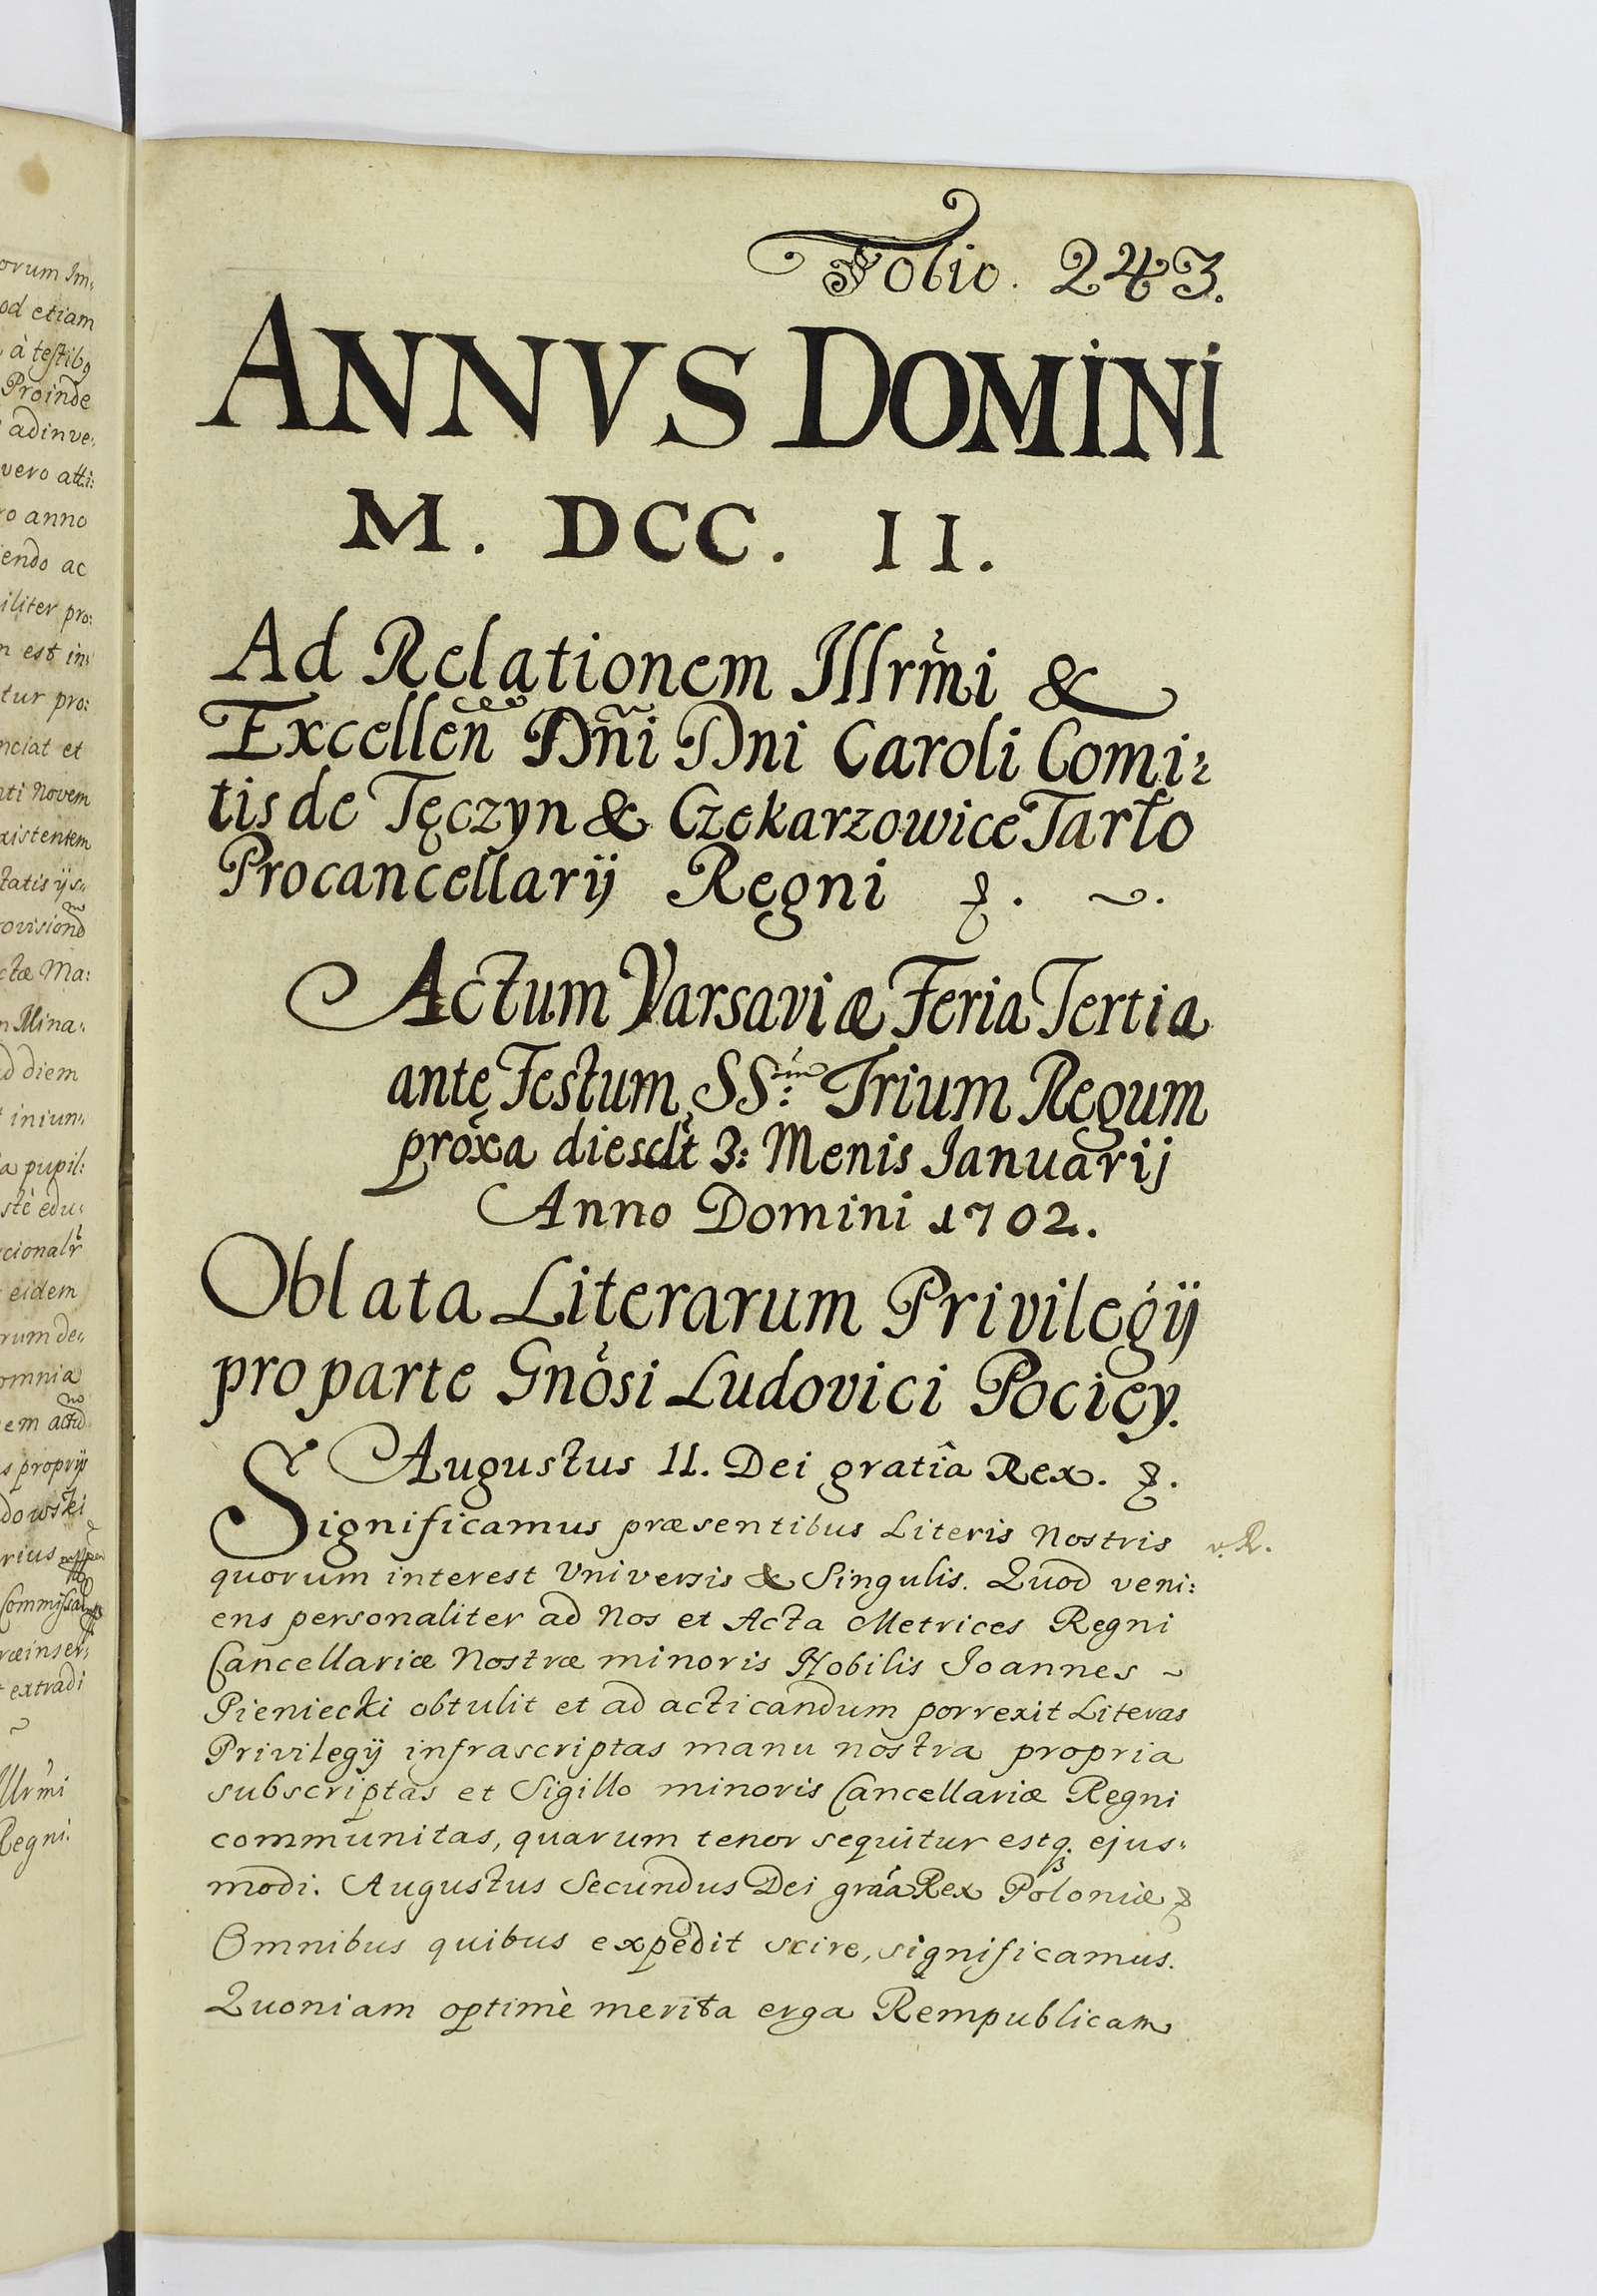 orum Im:
od etiam
à testib9
Proinde
adinve:
vero atti:
ro anno
endo ac
iliter pro:
n est in:
tur pro:
nciat et
nti Novem
xistentem
tatis ijs
ovisiond
ctæ Ma:
n Mina:
d diem
iniun:
a pupil:
stè edu:
cionalr
eidem
rum de:
omnia
em actd
s proprijs
dowski
rius
Commissa
ræinser:
extradi
~
Illrmi
Regni.
Folio. 243.
ANNVS DOMINI
M. DCC. II.
Ad Relationem Illrmi &
Excellen Dñi Dni Caroli Comi:
tis de Tęczyn & Czekarzowice Tarło
Procancellarij Regni &. ~.
Actum Varsaviæ Feria Tertia
ante Festum SS: Trium Regum
proxa die sclt 3: Menis Ianuarij
Anno Domini 1702.
Oblata Literarum Privilegij
pro parte Gnosi Ludovici Pociey.
Augustus II. Dei gratiâ Rex. &.
Significamus præsentibus Literis Nostris
v. R.
quorum interest Vniversis & Singulis. Quod veni:
ens personaliter ad Nos et Acta Metrices Regni
Cancellariæ Nostræ minoris Nobilis Joannes ~
Pieniecki obtulit et ad acticandum porrexit Literas
Privilegij infrascriptas manu nostra propria
subscriptas et Sigillo minoris Cancellariæ Regni
communitas, quarum tenor sequitur estq. ejus:
modi. Augustus Secundus Dei graa Rex Poloniæ &
Omnibus quibus expedit scire, significamus.
Quoniam optimè merita erga Rempublicam